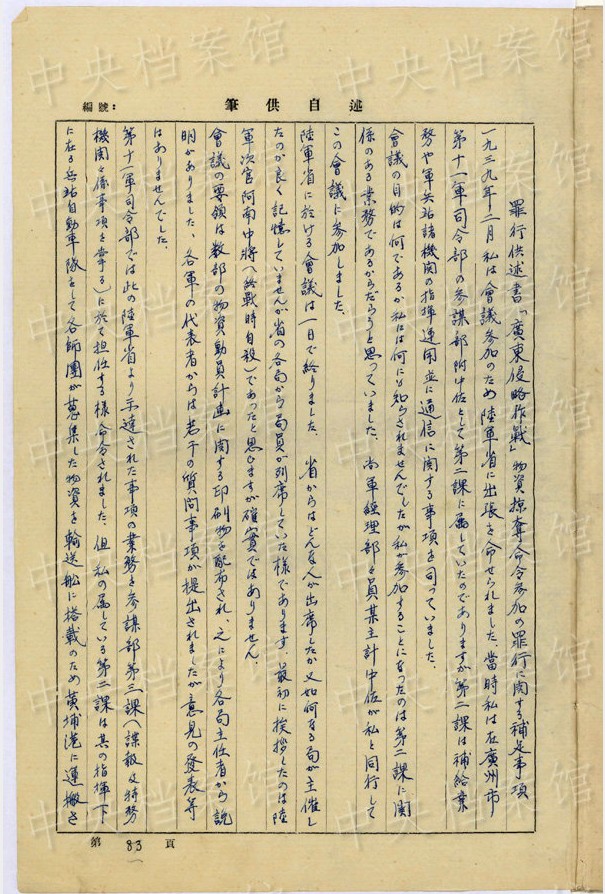 中央档案馆
編號：
述自供筆
罪行供述書「廣東侵略作戰」物資掠奪命令参加の罪行に関する補足事項
一九三九年二月私は會議参加のため陸軍省に出張を命せられました、當時私は在廣州市
第十一軍司令部の参謀部附中佐として第二課に属していたのでありますが第二課は補給業
務や軍兵站諸機関の指揮運用並に通信に関する事項を司っていました。
會議の目的は何であるか私には何にも知らされませんでしたが私が参加することになったのは第二課に関
係のある業務であるからだらうと思っていました。尚軍経理部々員某主計中佐が私と同行して
この會議に参加しました。
陸軍省に於ける會議は一日で終りました、省からはどんな人が出席したか又如何なる局が主催し
たのか良く記憶していませんが省の各局から局員が列席していた様であります、最初に挨拶したのは陸
軍次官阿南中將（終戰時自殺）であったと思ひますが確實ではありません。
會議の要領は数部の物資動員計画に関する印刷物を配布され、之により各局主任者から説
明がありました、各軍の代表者からは若干の質問事項が提出されましたが意見の發表等
はありませんでした。
第十一軍司令部では此の陸軍省より示達された事項の業務を参謀部第三課（諜報及特務
機関関係事項を掌る）に於て担任する様命令されました、但し私の属している第二課は其の指揮下
に在る兵站自動車隊をして各師團が蒐集した物資を輸送船に搭載のため黄埔港に運搬さ
第 83 頁